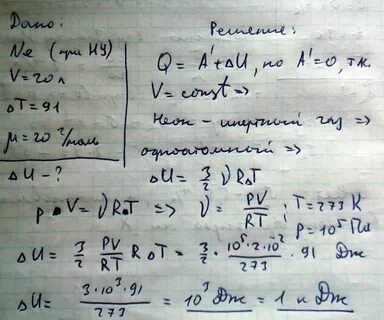 Дано:
Ne (при НУ)
V=20 л
ΔT=91
μ=20 г/моль
ΔU-?
Решение:
Q = A' + ΔU, но A'=0, т.к.
V = const =>
Неон - инертный газ =>
одноатомный =>
ΔU = 3/2 νRΔT
p·V = νR·T => ν = PV/RT ; T=273 K
P=10⁵ Па
ΔU = 3/2 PV/RT R ΔT = 3/2 · 10⁵·2·10⁻²/273 · 91 Дж
ΔU = 3·10³·91/273 = 10³ Дж = 1 кДж